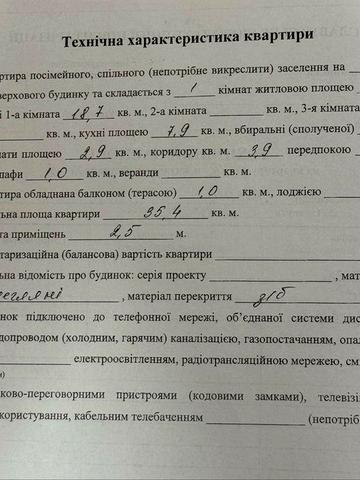 Технічна характеристика квартири
ртира посімейного, спільного (непотрібне викреслити) заселення на
верхового будинку та складається з 1 кімнат житловою площею
і 1-а кімната 18,7 кв. м., 2-а кімната кв. м., 3-я кімната
кв. м., кухні площею 7,9 кв. м., вбиральні (сполученої)
нати площею 2,9 кв. м., коридору кв. м. 3,9 передпокою
шафи 1,0 кв. м., веранди кв. м.
ртира обладнана балконом (терасою) 1,0 кв. м., лоджією
льна площа квартири 35,4 кв. м.
та приміщень 2,5 м.
нтаризаційна (балансова) вартість квартири
льна відомість про будинок: серія проекту , мат
, матеріал перекриття з/б
нок підключено до телефонної мережі, об’єднаної системи дис
допроводом (холодним, гарячим) каналізацією, газопостачанням, опал
електроосвітленням, радіотрансляційною мережею, см
и)
ково-переговорними пристроями (кодовими замками), телевізі
користування, кабельним телебаченням (непотріб